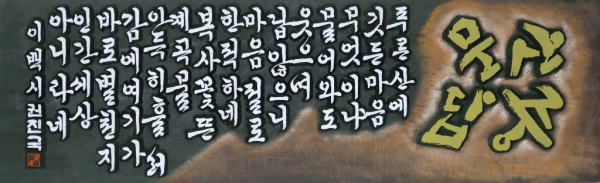 산중
문답
푸른산에
깃든 마음
무엇이냐
물어와도
웃으며
답 않으니
마음 절로
한적하네
복사꽃 뜬
계곡물
아득히 흘러
감에 여기가
바로 별천지
인간세상
아니라네
이백 시 권진국